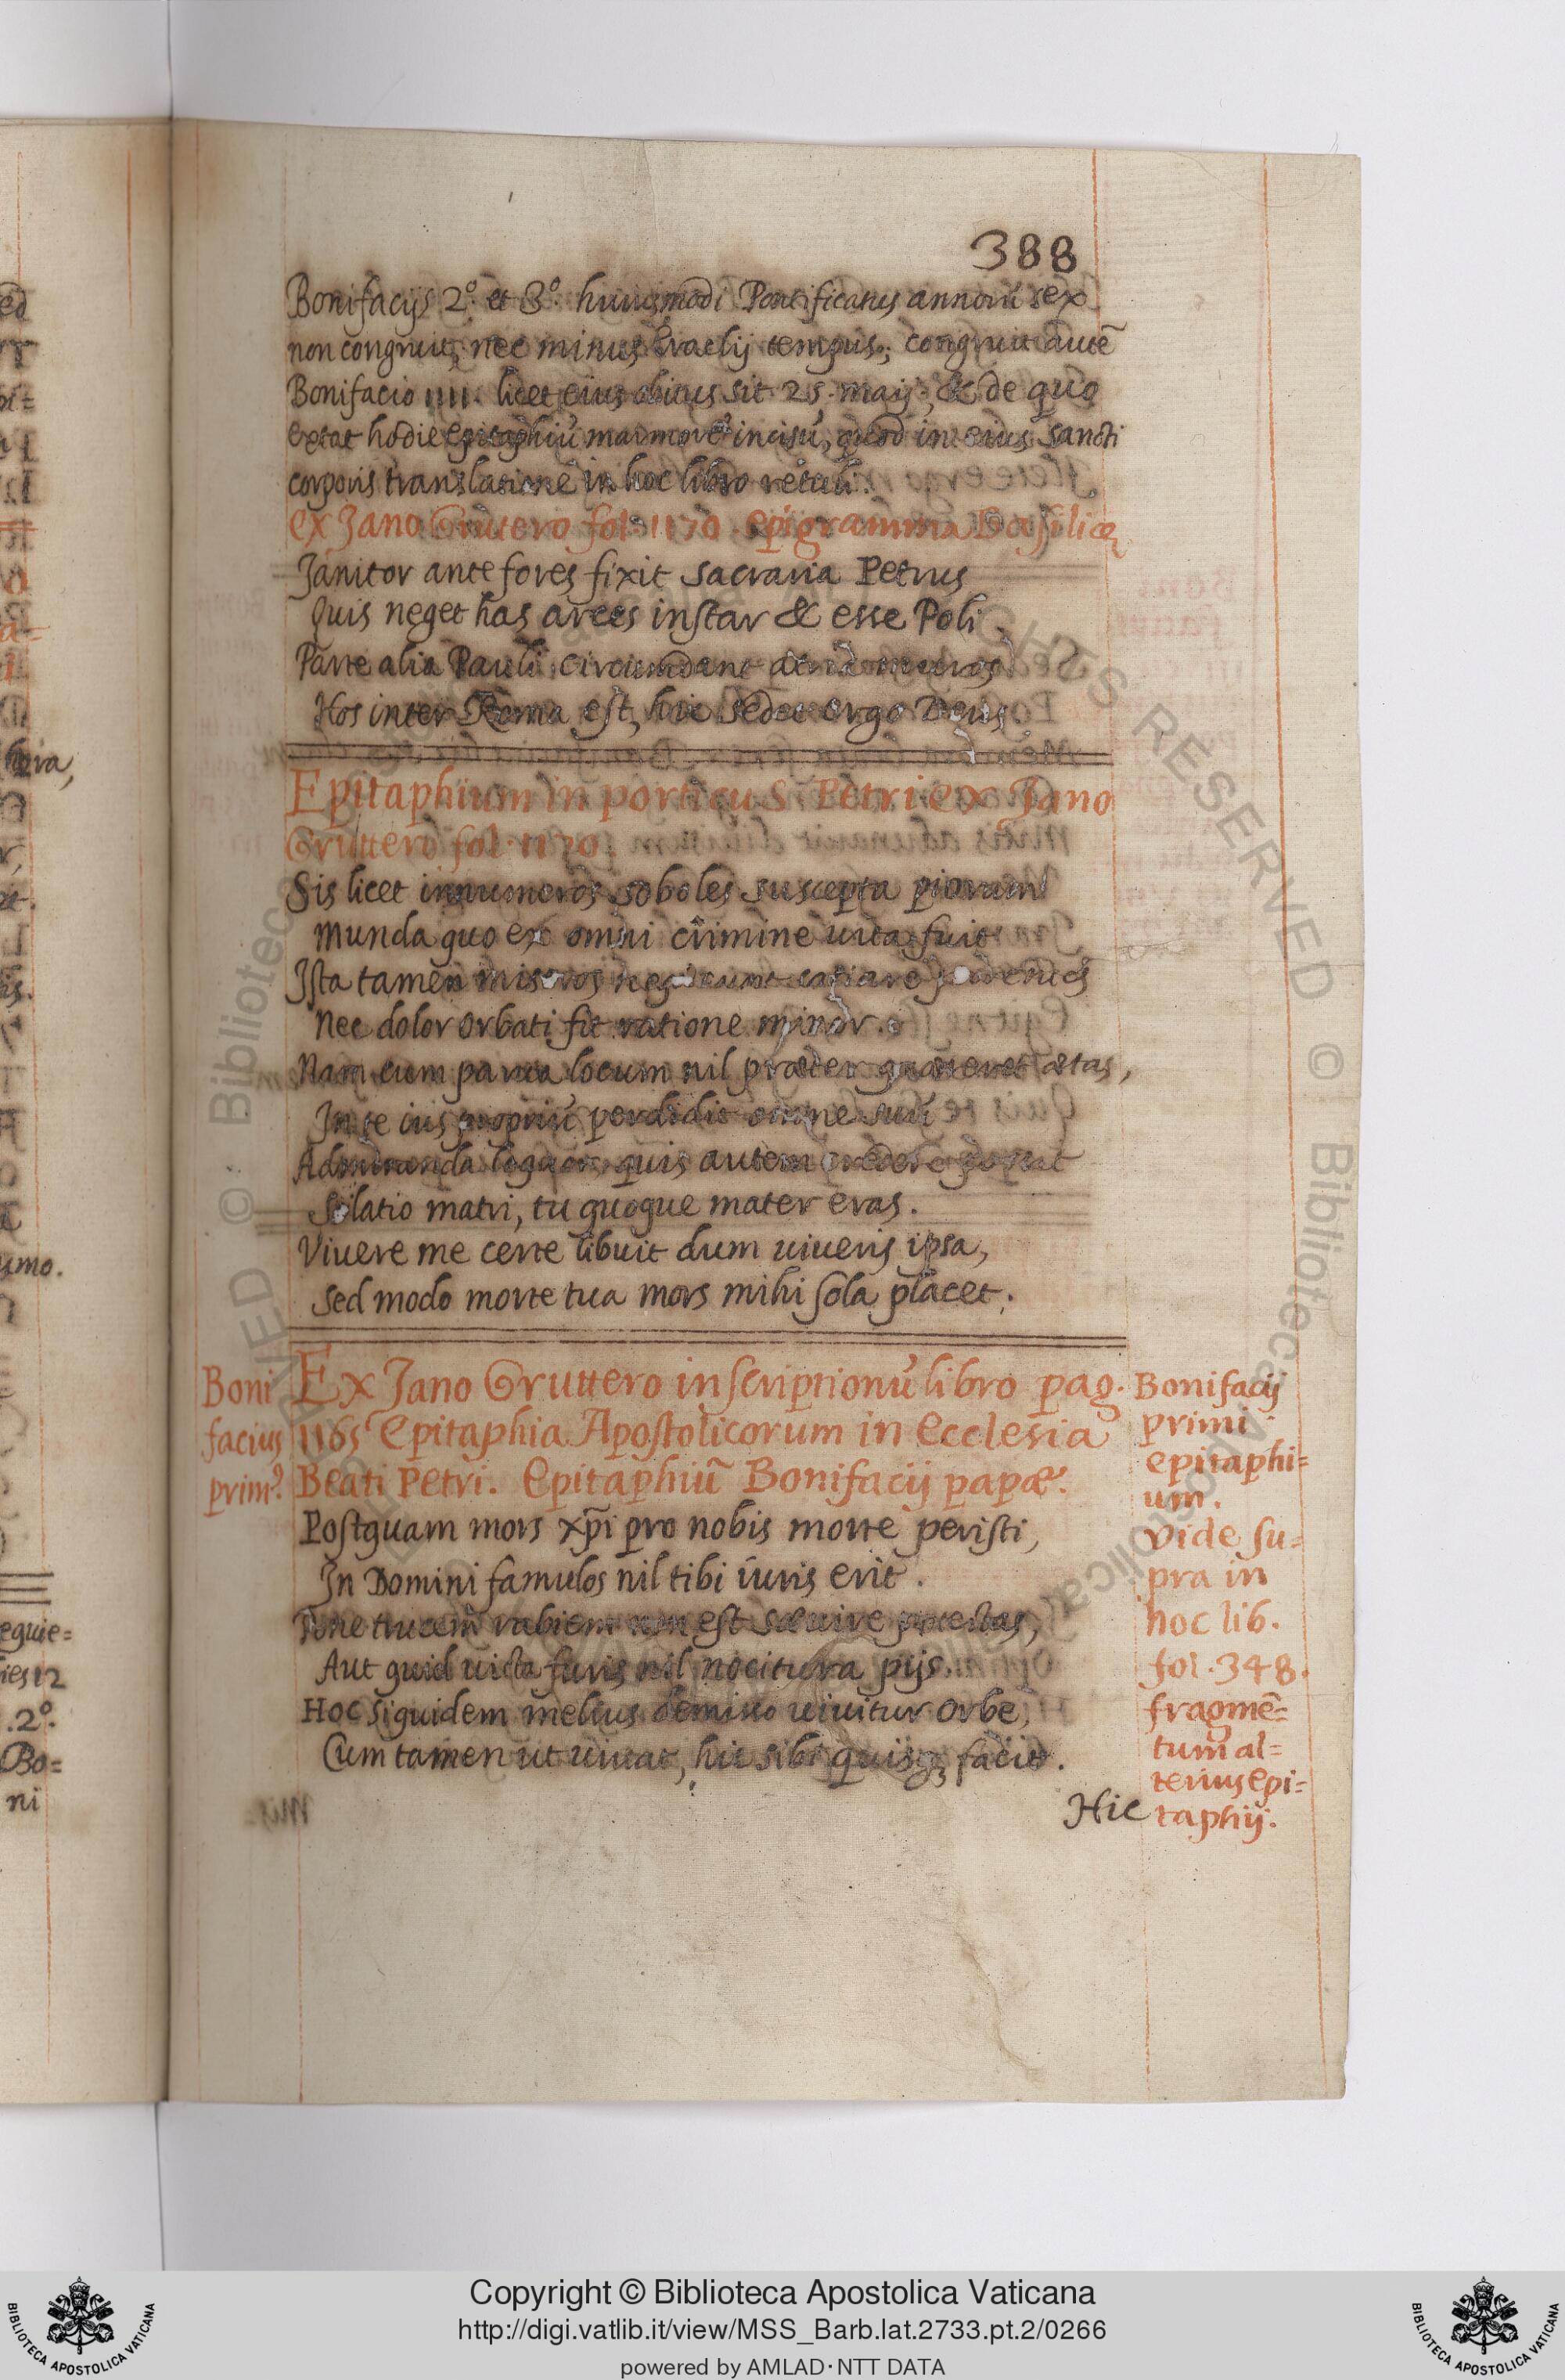 388
Bonifacijs 2.º et 3.º huiusmodi Pontificatus annorũ sex
non congruit, nec minus Eraclij tempus; congruit autẽ
Bonifacio IIII. licet eius obitus sit 25. maij; & de quo
extat hodie epitaphiũ marmore incisũ, quod in eius sancti
corporis translatione in hoc libro retuli.
Ex Jano Grutero fol. 1170. epigramma Basilicæ
Janitor ante fores fixit sacraria Petrus
Quis neget has arces instar & esse Poli
Parte alia Pauli circumdant muros
Hos inter Roma est, hic sedet ergo Deus
Epitaphium in porticu S. Petri ex Jano
Gruttero fol. 1170
Sis licet innumeros soboles suscepta piorum
Munda quo ex omni crimine uita fuit
Ista tamen miseros satiare parentes
Nec dolor orbati fit ratione minor.
Nam cum parua locum nil præter quæreret ætas,
In te ius propriũ perdidit omne suũ
Admiranda loquor, quis autem credere possit
Solatio matri, tu quoque mater eras.
Viuere me certe libuit dum uiueris ipsa,
Sed modo morte tua mors mihi sola placet.
Boni
facius
prim.9
Ex Jano Gruttero inscriptionũ libro pag.
1165 Epitaphia Apostolicorum in Ecclesia
Beati Petri. Epitaphiũ Bonifacij papæ.
Postquam mors xp̃i pro nobis morte peristi,
In Domini famulos nil tibi iuris erit.
Pone trucem rabiem non est sæuire potestas,
Aut quid uicta furis nil nocitura pijs.
Hoc siquidem melius uiuitur orbe,
Cum tamen ut uiuat, hic sibi quisqꝫ facit.
Hic
Bonifacij
primi
epitaphi=
um.
Vide su=
pra in
hoc lib.
fol. 348.
fragmẽ=
tum al=
terius epi=
taphij.
ed
hora,
umo.
equie=
ies 12
.2º.
Bo=
ni
Copyright © Biblioteca Apostolica Vaticana
http://digi.vatlib.it/view/MSS_Barb.lat.2733.pt.2/0266
powered by AMLAD·NTT DATA
BIBLIOTECA APOSTOLICA VATICANA
BIBLIOTECA APOSTOLICA VATICANA